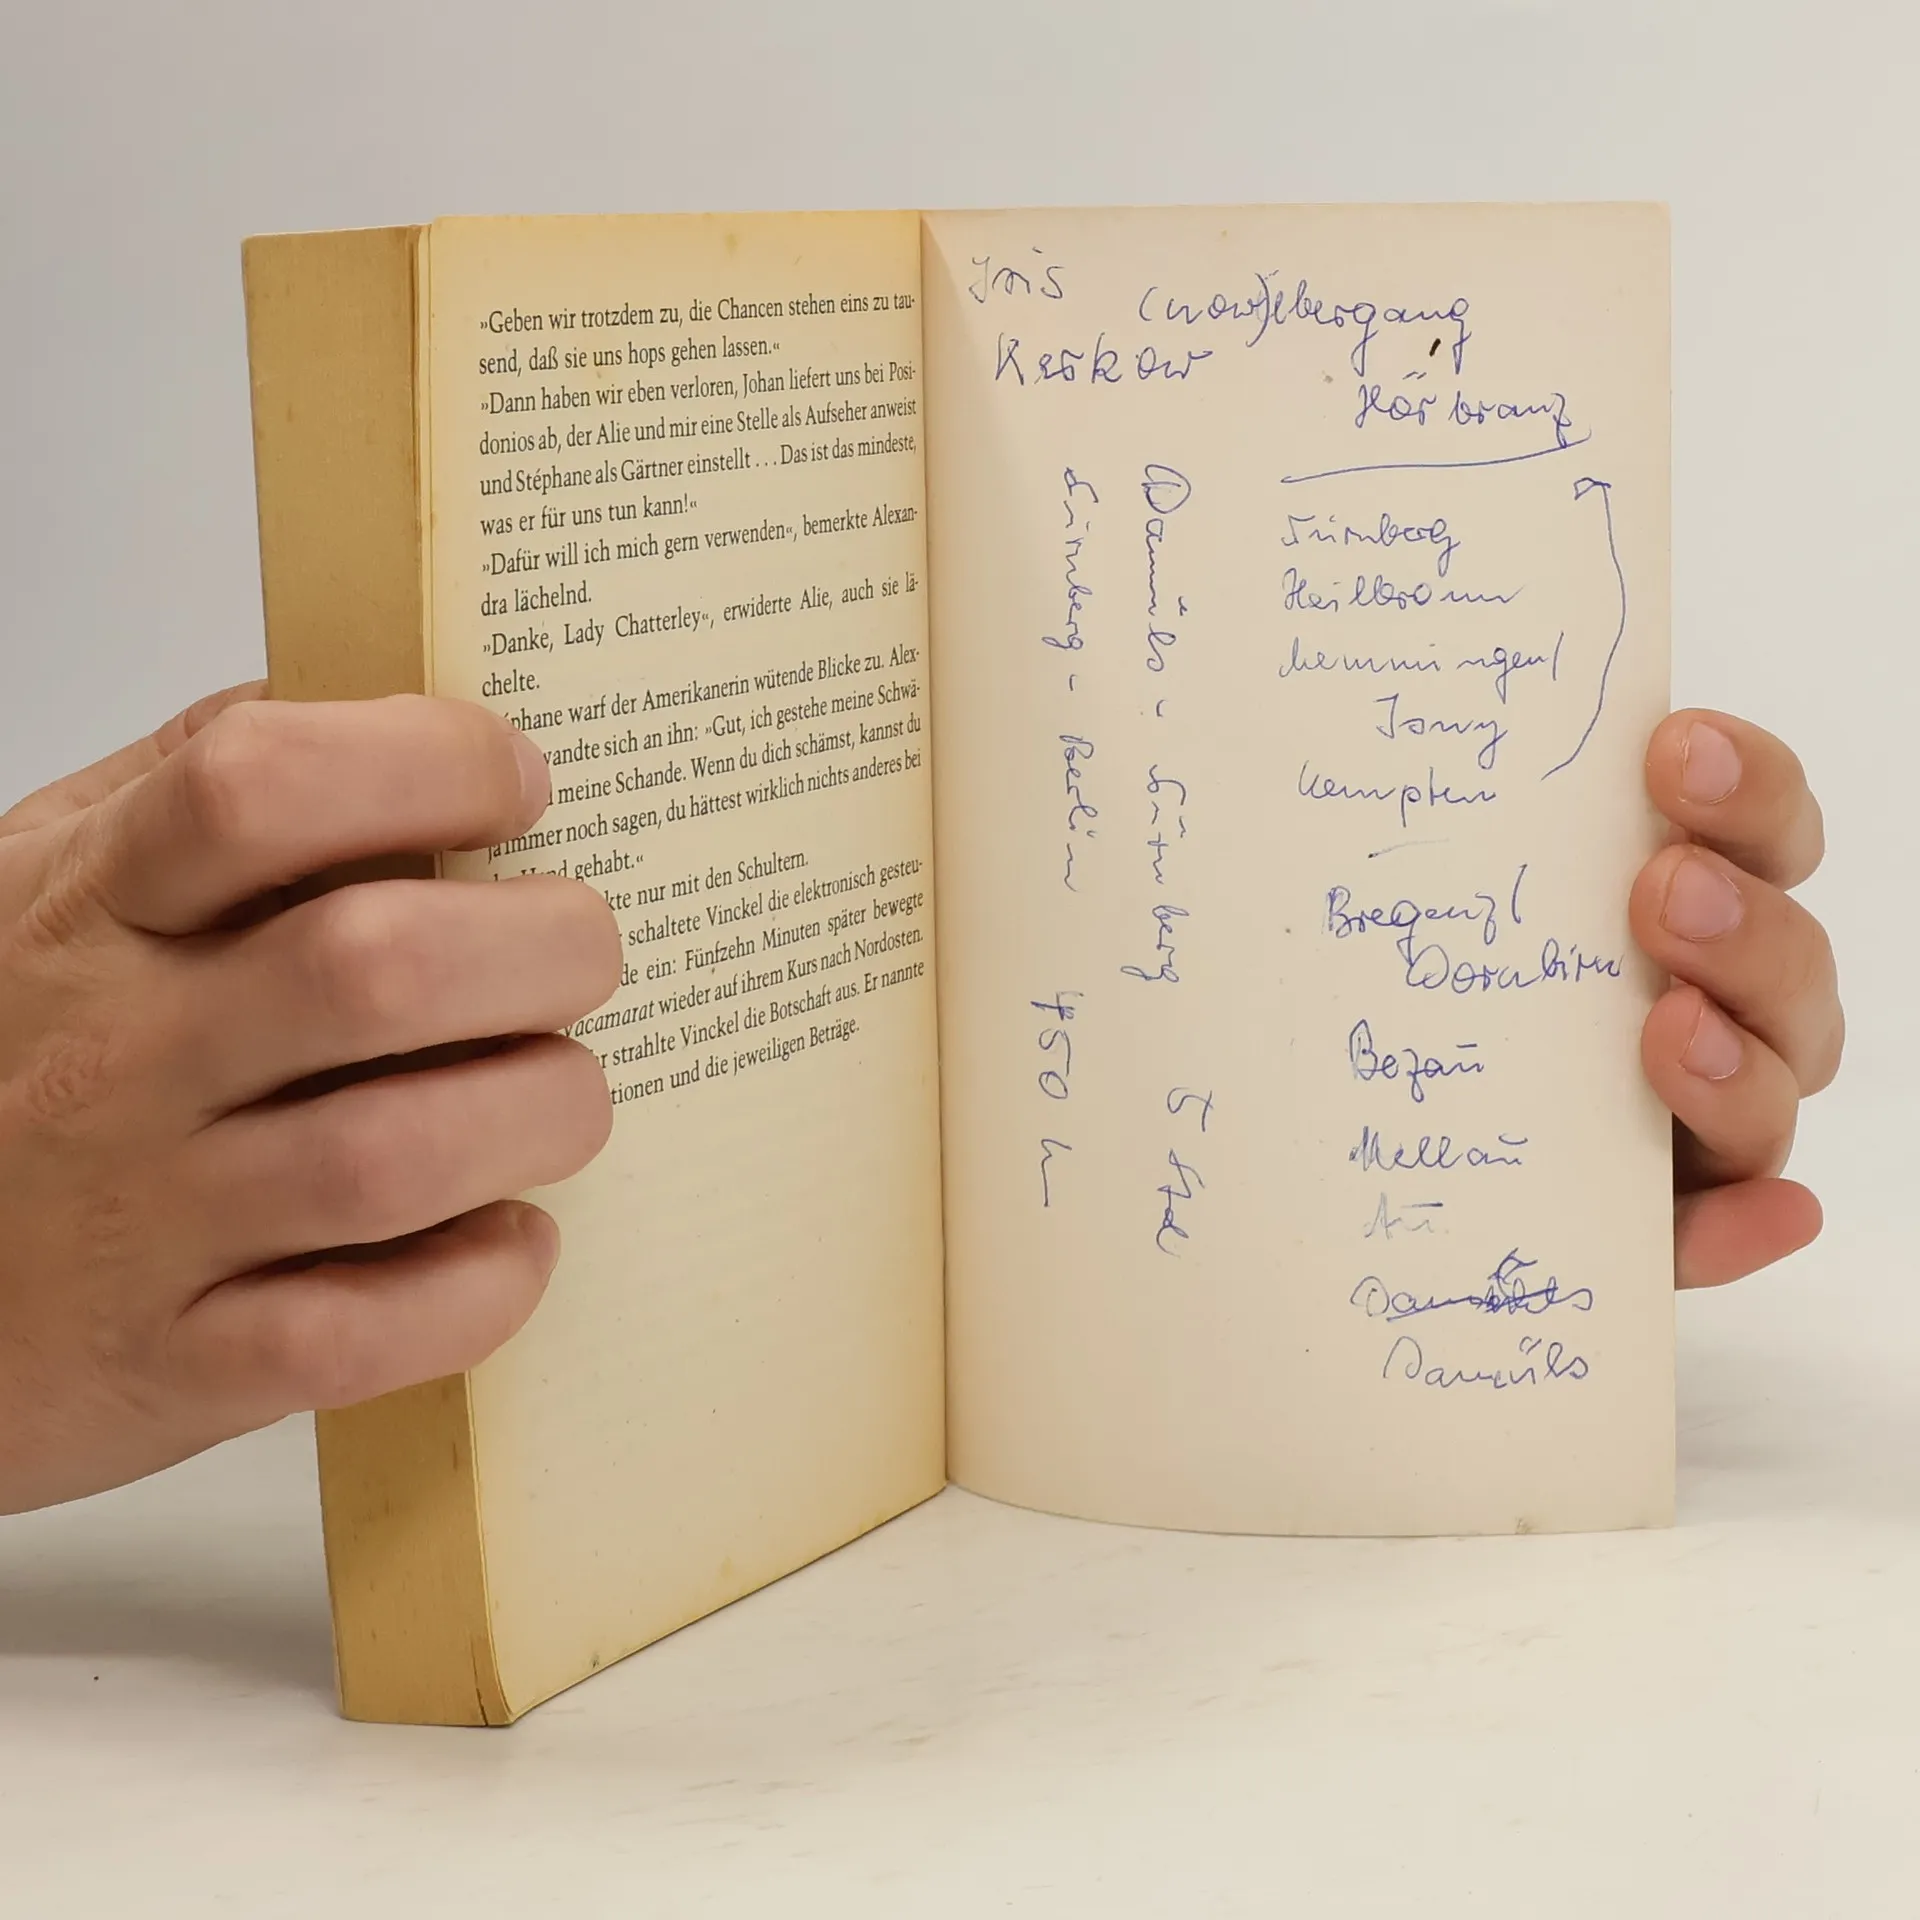 »Geben wir trotzdem zu, die Chancen stehen eins zu tau-
send, daß sie uns hops gehen lassen.«
»Dann haben wir eben verloren, Johan liefert uns bei Posi-
donios ab, der Alie und mir eine Stelle als Aufseher anweist
und Stéphane als Gärtner einstellt . . . Das ist das mindeste,
was er für uns tun kann!«
»Dafür will ich mich gern verwenden«, bemerkte Alexan-
dra lächelnd.
»Danke, Lady Chatterley«, erwiderte Alie, auch sie lä-
chelte.
éphane warf der Amerikanerin wütende Blicke zu. Alex-
wandte sich an ihn: »Gut, ich gestehe meine Schwä-
meine Schande. Wenn du dich schämst, kannst du
ja immer noch sagen, du hättest wirklich nichts anderes bei
Hand gehabt.«
kte nur mit den Schultern.
schaltete Vinckel die elektronisch gesteu-
de ein: Fünfzehn Minuten später bewegte
Vacamarat wieder auf ihrem Kurs nach Nordosten.
r strahlte Vinckel die Botschaft aus. Er nannte
tionen und die jeweiligen Beträge.
Iris
Kerkow
ebergang
Hörbranz
Nürnberg
Heilbronn
Memmingen/
Isny
Kempten
Bregenz/
Dornbirn
Bezau
Mellau
Au
Damüls
Damüls - Nürnberg 5 Std
Nürnberg - Berlin 450 k